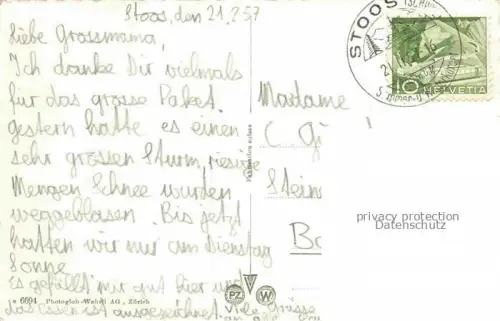 Stoos, den 21.2.57
Liebe Grossmama,
Ich danke Dir vielmals
für das grosse Paket.
gestern hatte es einen
sehr grossen Sturm, riesige
Mengen Schnee wurden
weggeblasen. Bis jetzt
hatten wir nur am Dienstag
Sonne
Es gefällt mir gut hier und
das Essen ist ausgezeichnet. Viele Grüsse
6694 Photoglob-Wehrli AG., Zürich
PZ W
STOOS
10 HELVETIA
Madame
privacy protection
Datenschutz